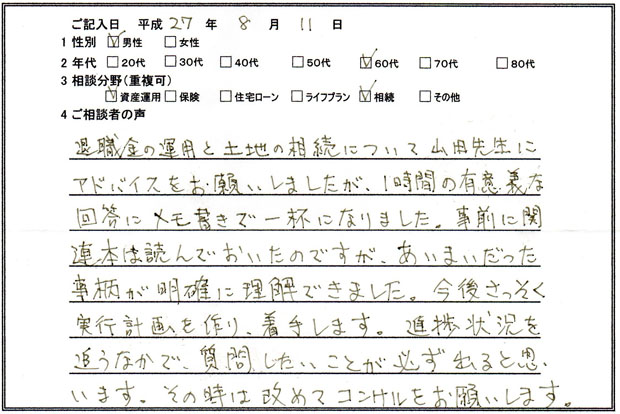 ご記入日 平成 27 年 8 月 11 日
1 性別 ☑男性 □女性
2 年代 □20代 □30代 □40代 □50代 ☑60代 □70代 □80代
3 相談分野(重複可)
☑資産運用 □保険 □住宅ローン □ライフプラン ☑相続 □その他
4 ご相談者の声
退職金の運用と土地の相続について山田先生に
アドバイスをお願いしましたが、1時間の有意義な
回答にメモ書きで一杯になりました。事前に関
連本は読んでおいたのですが、あいまいだった
事柄が明確に理解できました。今後さっそく
実行計画を作り、着手します。進捗状況を
追うなかで、質問したいことが必ず出ると思
います。その時は改めてコンサルをお願いします。